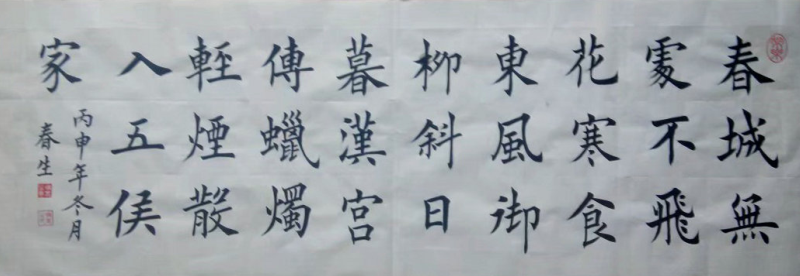 春城無
處不飛
花寒食
東風御
柳斜日
暮漢宮
傳蠟燭
輕煙散
入五侯
家
丙申年冬月
春生